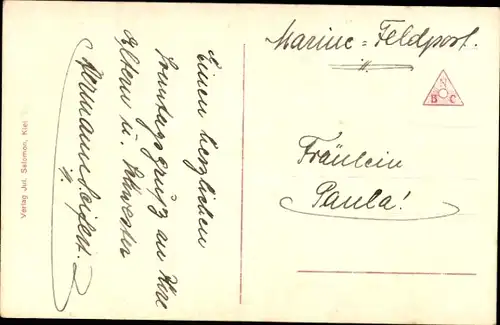 Einen herzlichen
Sonntagsgruß an Ihre
Eltern u. Schwester
Hermann Seifert.
Marine-Feldpost.
N
B C
Fräulein
Paula!
Verlag Jul. Salomon, Kiel